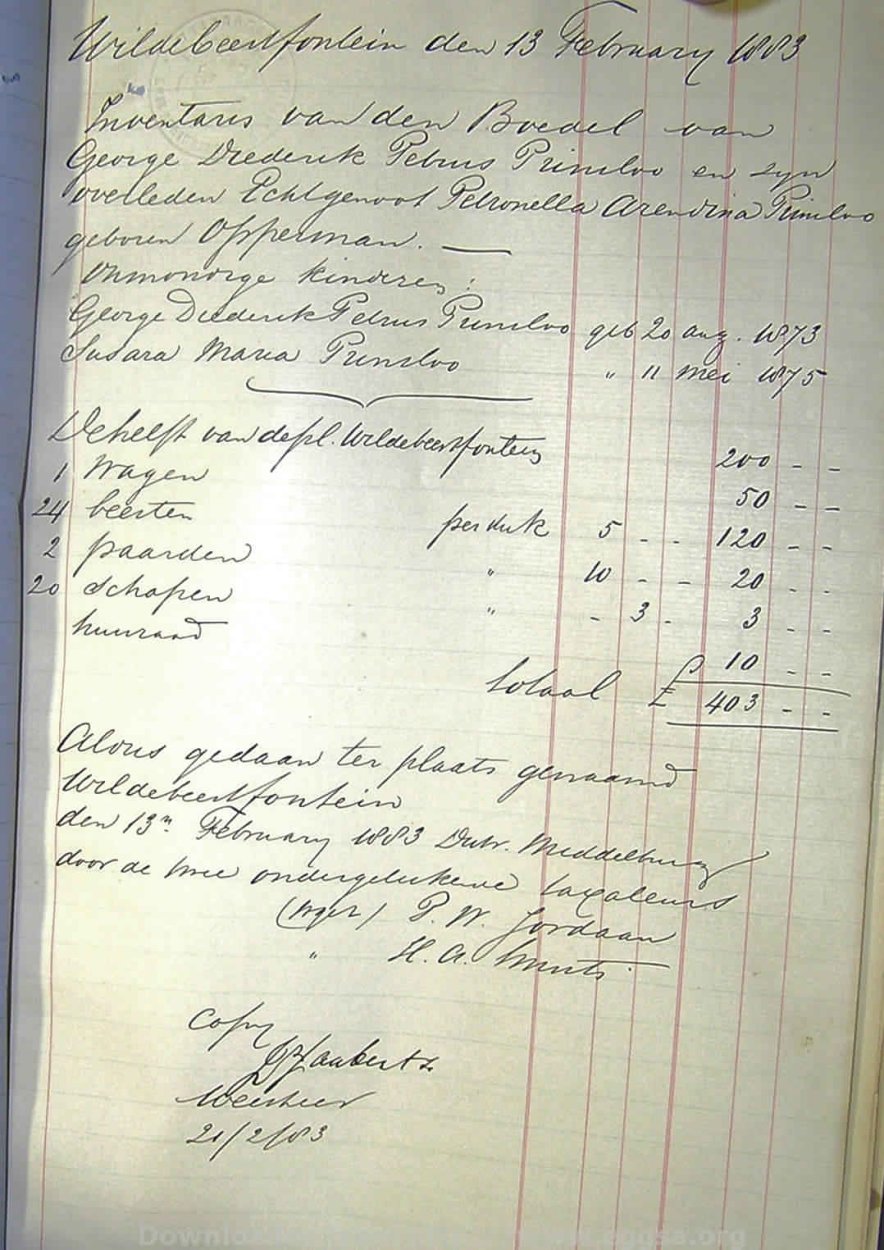 Wildebeestfontein den 13 February 1883
Inventaris van den Boedel van
George Diederik Petrus Prinsloo en zyn
overleden Echtgenoot Petronella Arendina Prinsloo
geboren Opperman. —
Onmondige kinderen:
George Diederik Petrus Prinsloo geb 20 aug. 1873
Susara Maria Prinsloo " 11 Mei 1875
De helft van de pl. Wildebeestfontein 200 - -
1 Wagen 50 - -
24 beesten per stuk 5 - - 120 - -
2 paarden " 10 - - 20 - -
20 schapen " - 3 - 3 - -
huisraad 10 - -
totaal £ 403 - -
Aldus gedaan ter plaats genaamd
Wildebeestfontein
den 13n February 1883 Distr. Middelburg
door de twee ondergetekende taxateurs
(wget) P. W. Jordaan
" H. A. Smuts
Copy
Weesheer
21/2/83